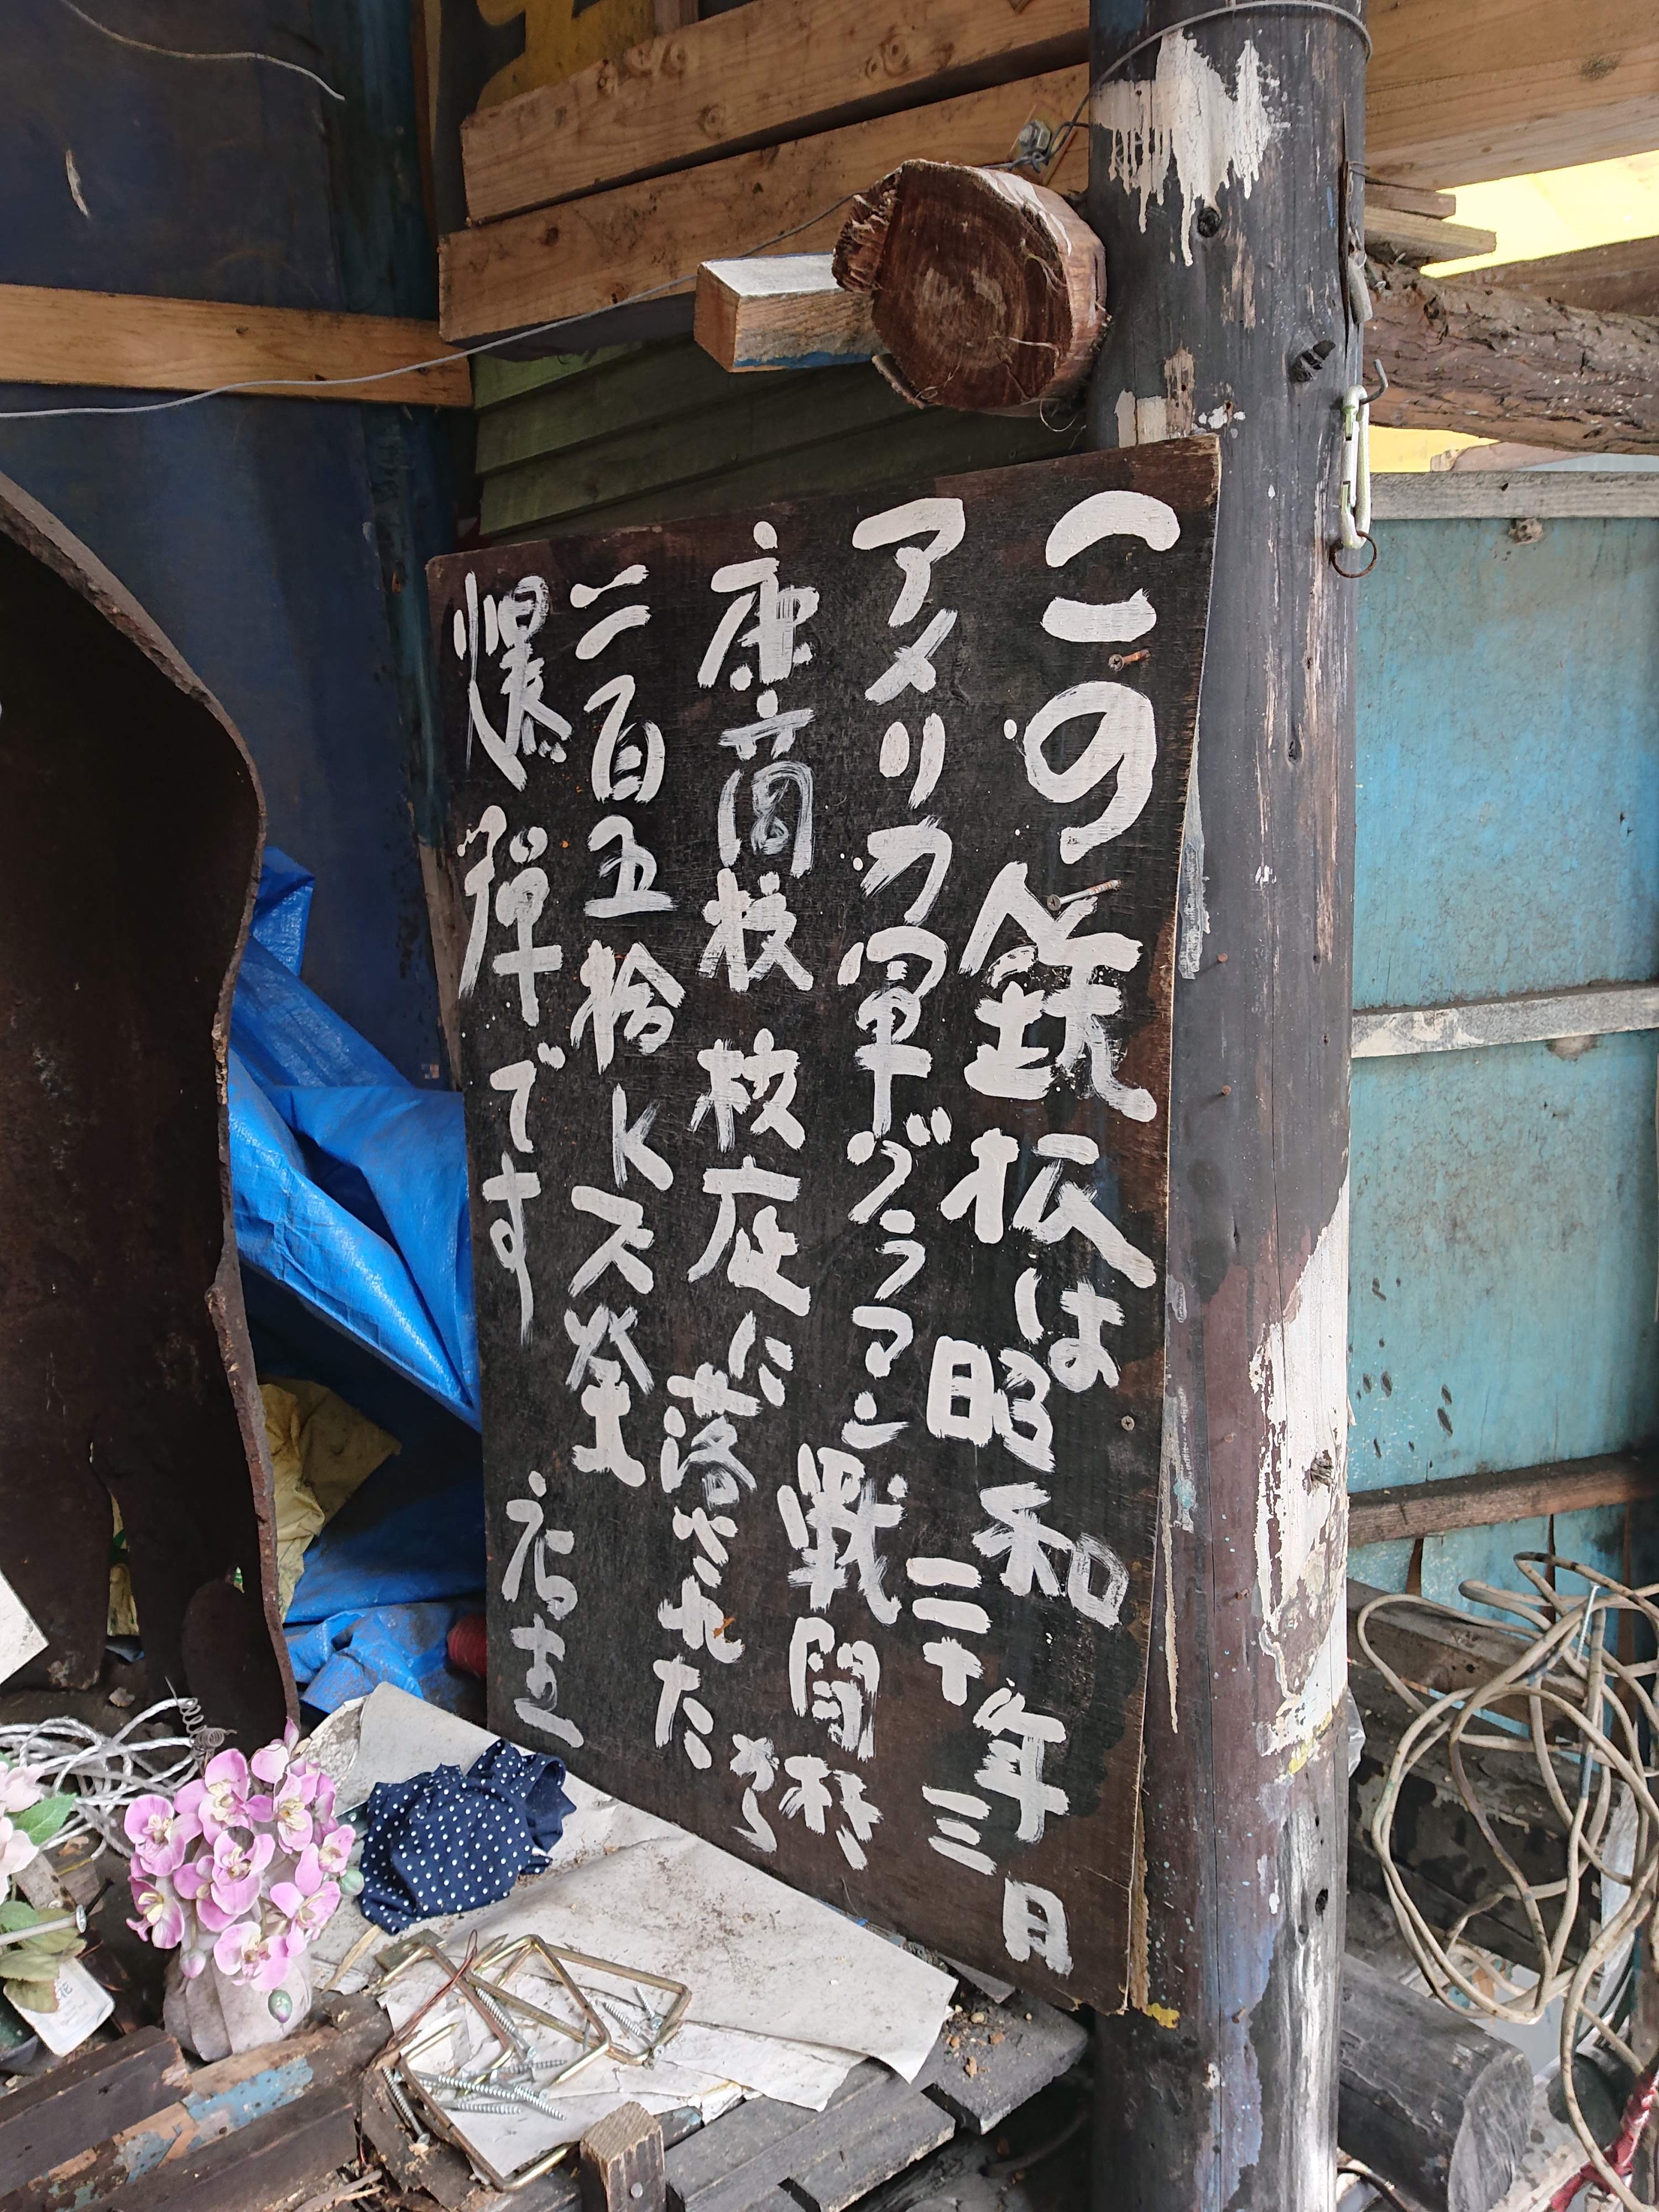 この鉄板は昭和二十年三日
アメリカ軍グラマン戦闘機から
商校校庭に落された
二百五拾K不発
爆弾です
店主